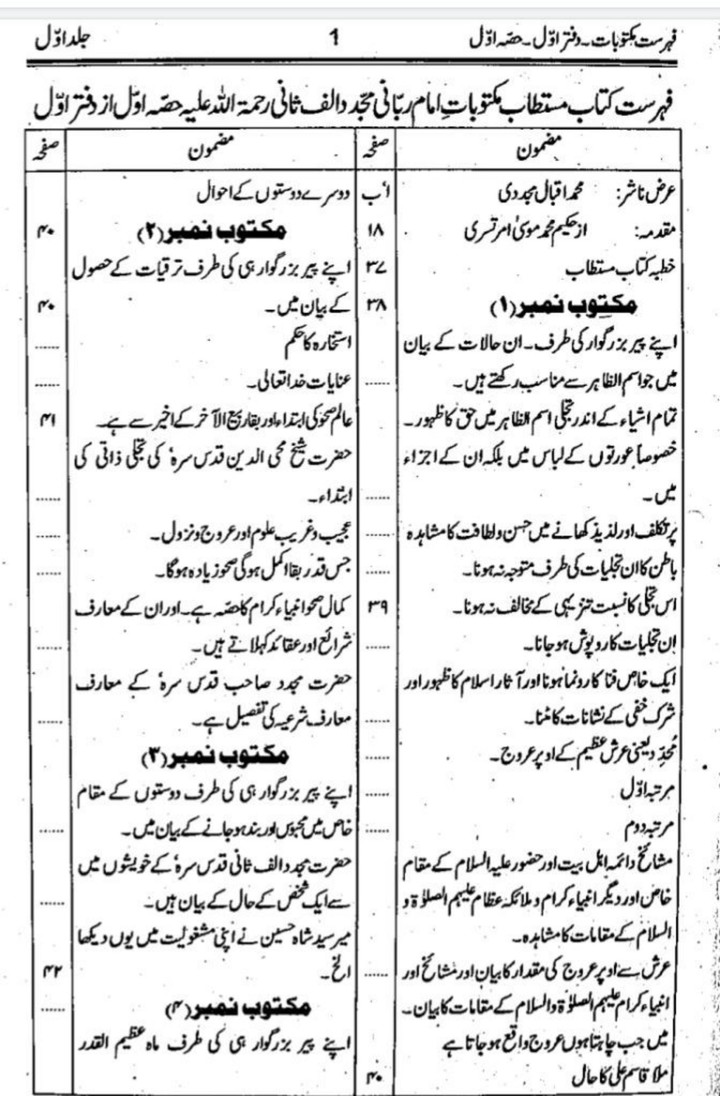 فہرست مکتوبات۔ دفتر اوّل۔ حصہ اوّل
1
جلد اوّل
فہرست کتاب مستطاب مکتوباتِ امام ربّانی مجدّد الف ثانی رحمۃ اللہ علیہ حصہ اوّل از دفتر اوّل
مضمون صفحہ
عرض ناشر: محمد اقبال مجددی ا'ب
مقدمہ: از حکیم محمد موسیٰ امرتسری ۱۸
خطبہ کتاب مستطاب ۳۷
مکتوب نمبر (۱) ۳۸
اپنے پیر بزرگوار کی طرف۔ ان حالات کے بیان
میں جو اسم الظاہر سے مناسب رکھتے ہیں۔ ......
تمام اشیاء کے اندر تجلی اسم الظاہر میں حق کا ظہور۔
خصوصاً عورتوں کے لباس میں بلکہ ان کے اجزاء
میں۔ ......
پر تکلف اور لذیذ کھانے میں حسن و لطافت کا مشاہدہ ......
باطن کا ان تجلیات کی طرف متوجہ نہ ہونا۔ ......
اس تجلی کا نسبت تنزیہی کے مخالف نہ ہونا۔ ۳۹
ان تجلیات کا روپوش ہو جانا۔ ......
ایک خاص فنا کا رونما ہونا اور آثار اسلام کا ظہور اور
شرک خفی کے نشانات کا مٹنا۔ ......
مُحدِّد یعنی عرش عظیم کے اوپر عروج۔ ......
مرتبہ اوّل ......
مرتبہ دوم ......
مشائخ و ائمہ اہل بیت اور حضور علیہ السلام کے مقام
خاص اور دیگر انبیاء کرام و ملائکہ عظام علیہم الصلوٰۃ و
السلام کے مقامات کا مشاہدہ۔
عرش سے اوپر عروج کی مقدار کا بیان اور مشائخ اور ......
انبیاء کرام علیہم الصلوٰۃ والسلام کے مقامات کا بیان۔
میں جب چاہتا ہوں عروج واقع ہو جاتا ہے
ملا قاسم علی کا حال ۴۰
مضمون صفحہ
دوسرے دوستوں کے احوال
مکتوب نمبر (۲) ۴۰
اپنے پیر بزرگوار ہی کی طرف ترقیات کے حصول
کے بیان میں۔ ۴۰
استخارہ کا حکم ......
عنایات خدا تعالی۔ ......
عالم صحو کی ابتداء اور بقا ربیع الآخر کے اخیر سے ہے۔ ۴۱
حضرت شیخ محی الدین قدس سرہٗ کی تجلی ذاتی کی
ابتداء۔ ......
عجیب و غریب علوم اور عروج و نزول۔ ......
جس قدر بقا اکمل ہوگی صحو زیادہ ہوگا۔ ......
کمال صحو انبیاء کرام کا حصہ ہے۔ اور ان کے معارف
شرائع اور عقائد کہلاتے ہیں۔ ......
حضرت مجدد صاحب قدس سرہٗ کے معارف
معارف شرعیہ کی تفصیل ہے۔ ......
مکتوب نمبر (۳)
اپنے پیر بزرگوار ہی کی طرف دوستوں کے مقام
خاص میں محبوس اور بند ہو جانے کے بیان میں۔ ......
حضرت مجدد الف ثانی قدس سرہٗ کے خویشوں میں
سے ایک شخص کے حال کے بیان ہیں۔ ......
میر سید شاہ حسین نے اپنی مشغولیت میں یوں دیکھا
الخ۔ ۴۲
مکتوب نمبر (۴) ......
اپنے پیر بزرگوار ہی کی طرف ماہ عظیم القدر